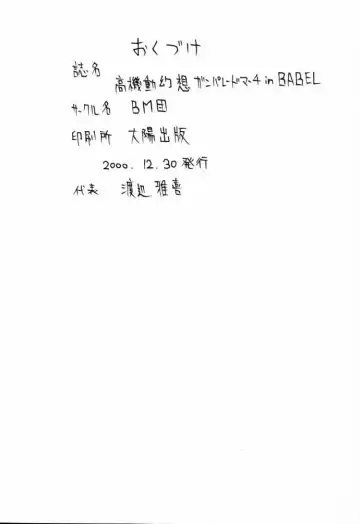 おくづけ
誌名
高機動幻想ガンパレードマーチ in BABEL
サークル名 BM団
印刷所 大陽出版
2000.12.30発行
代表 渡辺雅喜